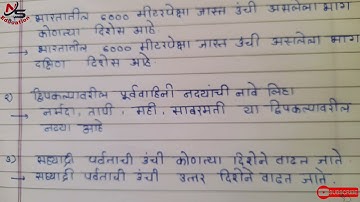 NS
Education
भारतातील ६००० मीटरपेक्षा जास्त उंची असलेला भाग
कोणत्या दिशेस आहे.
→ भारतातील ६००० मीटरपेक्षा जास्त उंची असलेला भाग
दक्षिण दिशेस आहे.
२) द्विपकल्पावरील पूर्ववाहिनी नदयांची नावे लिहा
→ नर्मदा, तापी, मही, साबरमती या द्विपकल्पावरील
नदया आहे
३) सह्याद्री पर्वताची उंची कोणत्या दिशेने वाढत जाते
→ सह्याद्री पर्वताची उंची उत्तर दिशेने वाढत जाते.
SUBSCRIBE